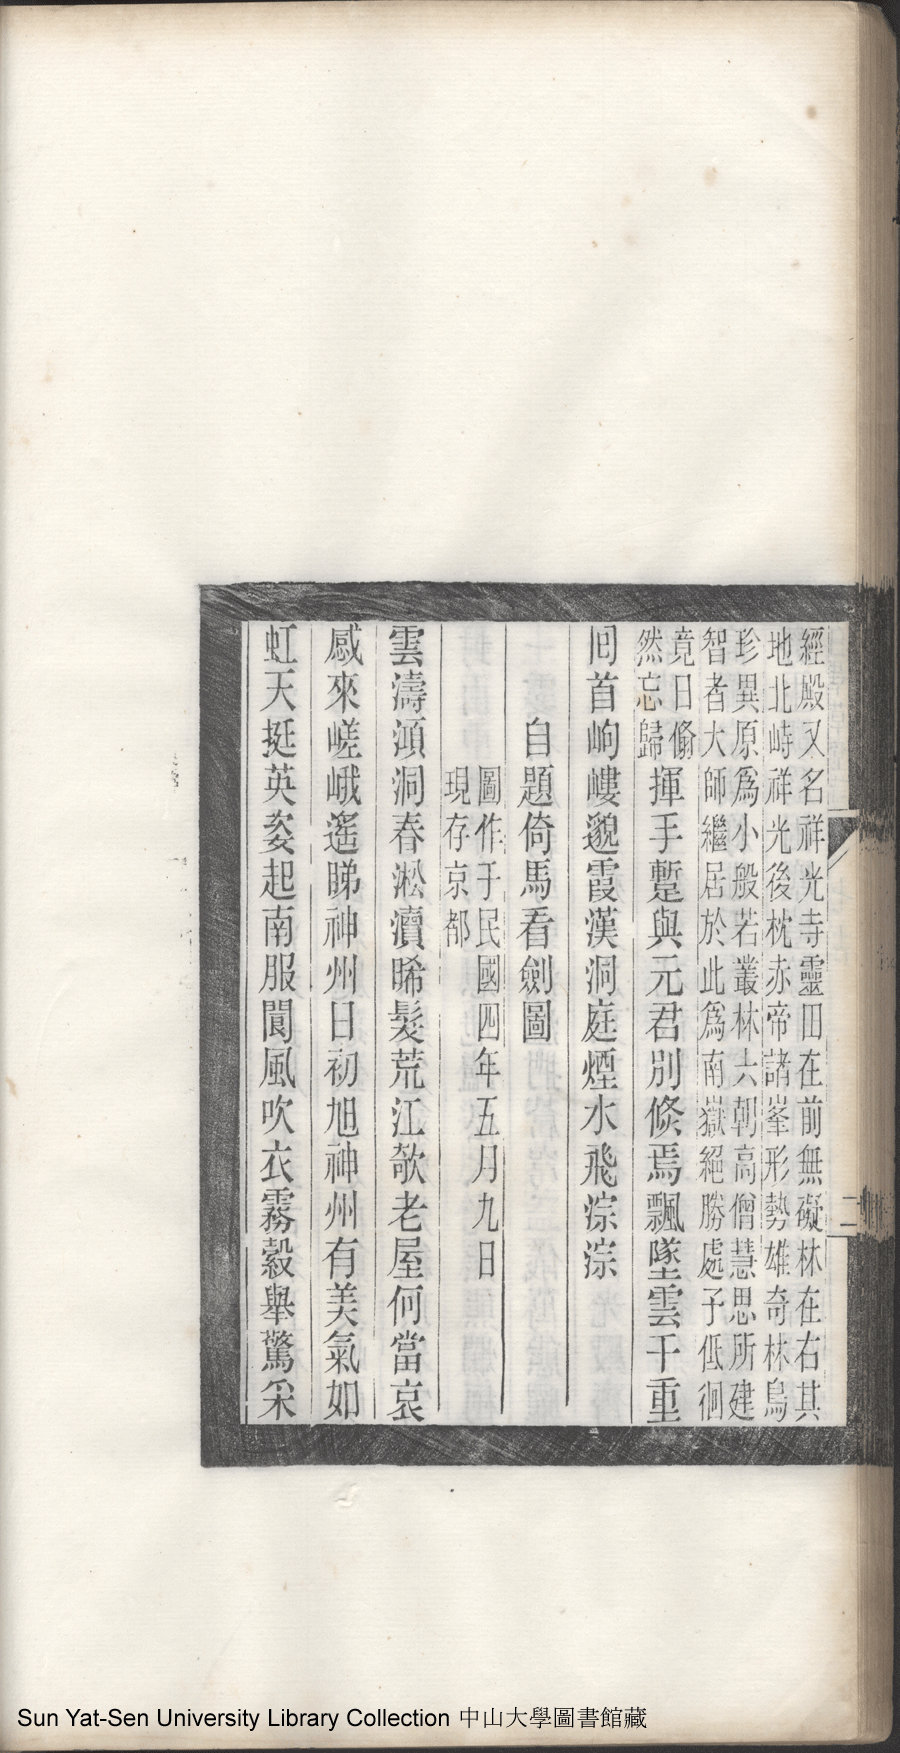 經殿又名祥光寺靈田在前無礙林在右其
地北峙祥光後枕赤帝諸峯形勢雄奇林鳥
珍異原爲小般若叢林六朝高僧慧思所建
智者大師繼居於此爲南嶽絕勝處予低徊
竟日翛
然忘歸揮手蹔與元君別倏焉飄墜雲千重
囘首岣嶁邈霞漢洞庭煙水飛淙淙
自題倚馬看劍圖
圖作于民國四年五月九日
現存京都
雲濤澒洞春淞瀆晞髮荒江欹老屋何當哀
感來嵯峨遙睇神州日初旭神州有美氣如
虹天挺英姿起南服閬風吹衣霧縠舉驚采
二
Sun Yat-Sen University Library Collection 中山大學圖書館藏